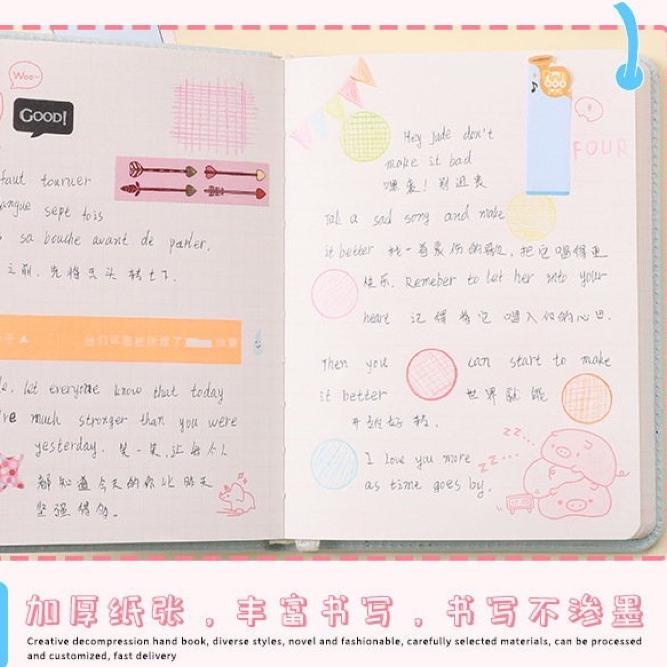 Woo~
GOOD!
faut tourner
langue sept fois
sa bouche avant de parler.
之前，先将舌头 转七下.
let everyone know that today
much stronger than you were
yesterday. 笑一笑,让每个人
都知道今天的你比昨天
坚强得多。
FOUR
Hey Jude don't
make it bad
嘿 裘! 别沮丧
Tak a sad song and make
it better 找一首哀伤的歌,把它唱得更
快乐. Remeber to let her into your
heart 记得将它唱入你的心田.
Then you can start to make
it better 世界就能
开始好转.
I love you more
as time goes by.
zz...
zz...
加厚纸张，丰富书写，书写不渗墨
Creative decompression hand book, diverse styles, novel and fashionable, carefully selected materials, can be processed
and customized, fast delivery